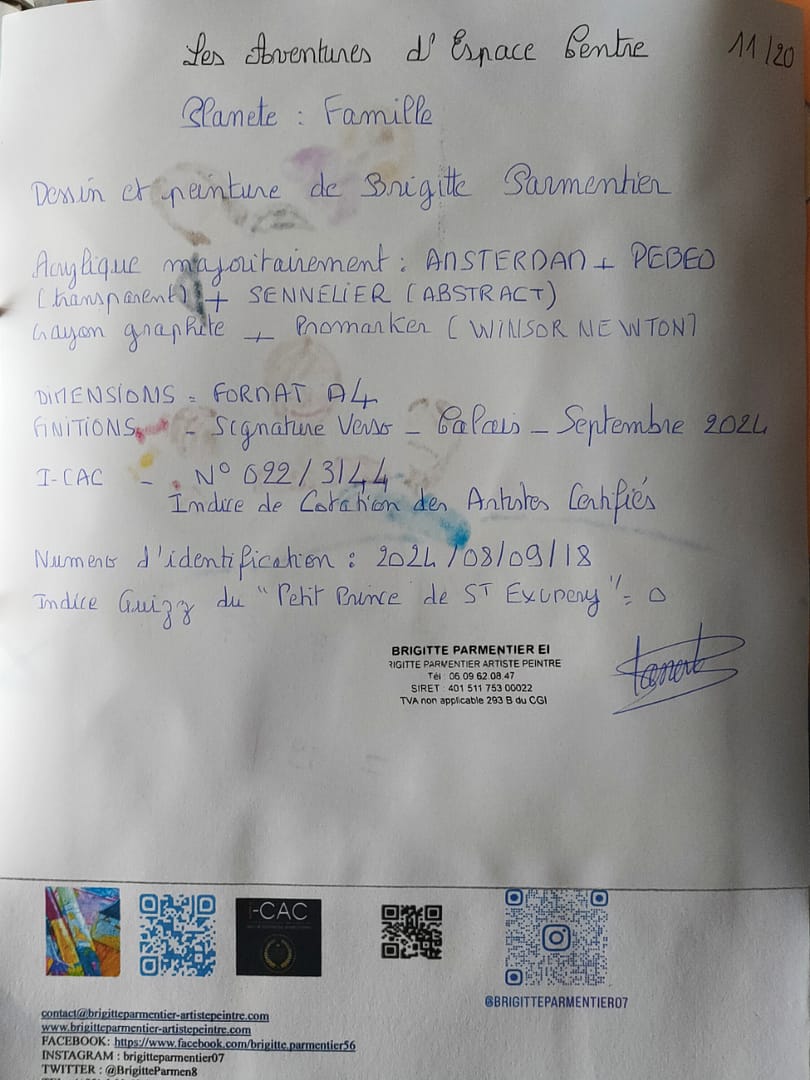 Les Aventures d'Espace Centre 11/20
Planete : Famille
Dessin et peinture de Brigitte Parmentier
Acrylique majoritairement : AMSTERDAM + PEBEO
(transparent) + SENNELIER (ABSTRACT)
Crayon graphite + Promarker (WINSOR NEWTON)
DIMENSIONS = FORMAT A4
FINITIONS - Signature Verso - Palais - Septembre 2024
I-CAC - N° 622/3144
Indice de Cotation des Artistes Certifiés
Numero d'identification : 2024/08/09/18
Indice Guizz du "Petit Prince de ST Exupery" = 0
BRIGITTE PARMENTIER EI
RIGITTE PARMENTIER ARTISTE PEINTRE
Tél : 06 09 62 08 47
SIRET : 401 511 753 00022
TVA non applicable 293 B du CGI
I-CAC
@BRIGITTEPARMENTIER07
contact@brigitteparmentier-artistepeintre.com
www.brigitteparmentier-artistepeintre.com
FACEBOOK: https://www.facebook/brigitte.parmentier56
INSTAGRAM : brigitteparmentier07
TWITTER : @BrigitteParmen8